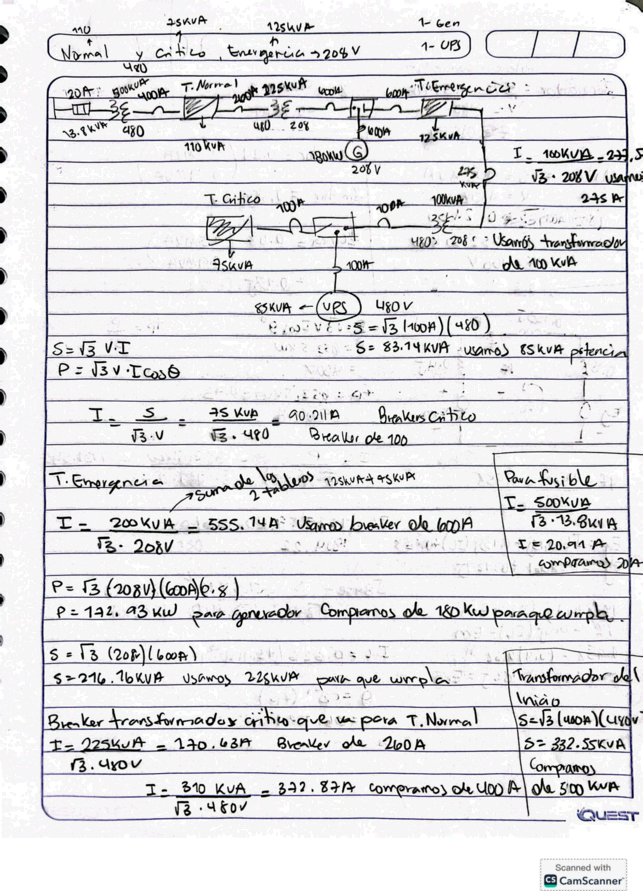 110 75KVA 125KVA 1- Gen
Normal y Critico, Emergencia → 208 V 1- UPS
480
20A 500KVA 400A T. Normal 200A 225KVA 600A 600A T. Emergencia
13.8KVA 480 480 208 600A
110 KVA 125KVA
180KW G
208V
I = 100KVA = 277.5
√3 · 208V usamos
275 A
275 KVA
T. Critico
100A 100A 100KVA
480 208 Usamos transformador
de 100 KVA
75KVA
100A
85KVA ← UPS 480V
S = √3 (100A)(480)
S = √3 V·I S = 83.14KVA usamos 85KVA potencia
P = √3 V · I Cos θ
I = S = 75 KVA = 90.211A Breakers Critico
√3 · V √3 · 480 Breaker de 100
T. Emergencia → Suma de los 2 tableros 125KVA + 75KVA
I = 200KVA = 555.14A Usamos breaker de 600A
√3 · 208V
Para fusible
I = 500KVA
√3 · 13.8KVA
I = 20.91 A
compramos 20A
P = √3 (208V)(600A)(0.8)
P = 172.93 KW para generador Compramos de 180 KW para que cumpla.
S = √3 (208)(600A)
S = 216.16KVA usamos 225KVA para que cumpla
Breaker transformador critico que va para T. Normal
I = 225KVA = 270.63A Breaker de 260A
√3 · 480V
I = 310 KVA = 372.87A compramos de 400A
√3 · 480V
Transformador del
Inicio
S = √3 (400A)(480V
S = 332.55KVA
Compramos
de 500 KVA
QUEST
Scanned with
CS CamScanner